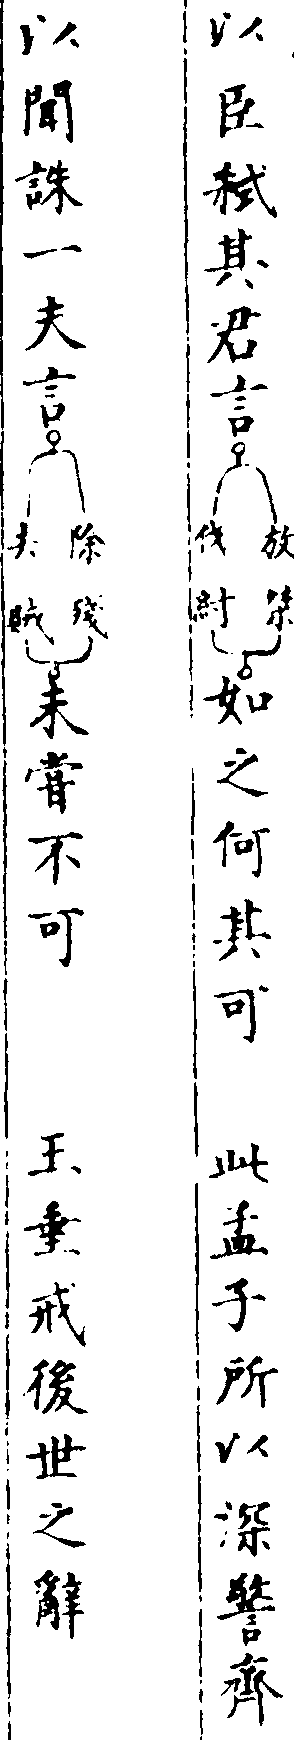 以臣弒其君言放桀伐紂如之何其可　此孟子所以深警齊
以聞誅一夫言除殘去賊未嘗不可　王垂戒後世之辭